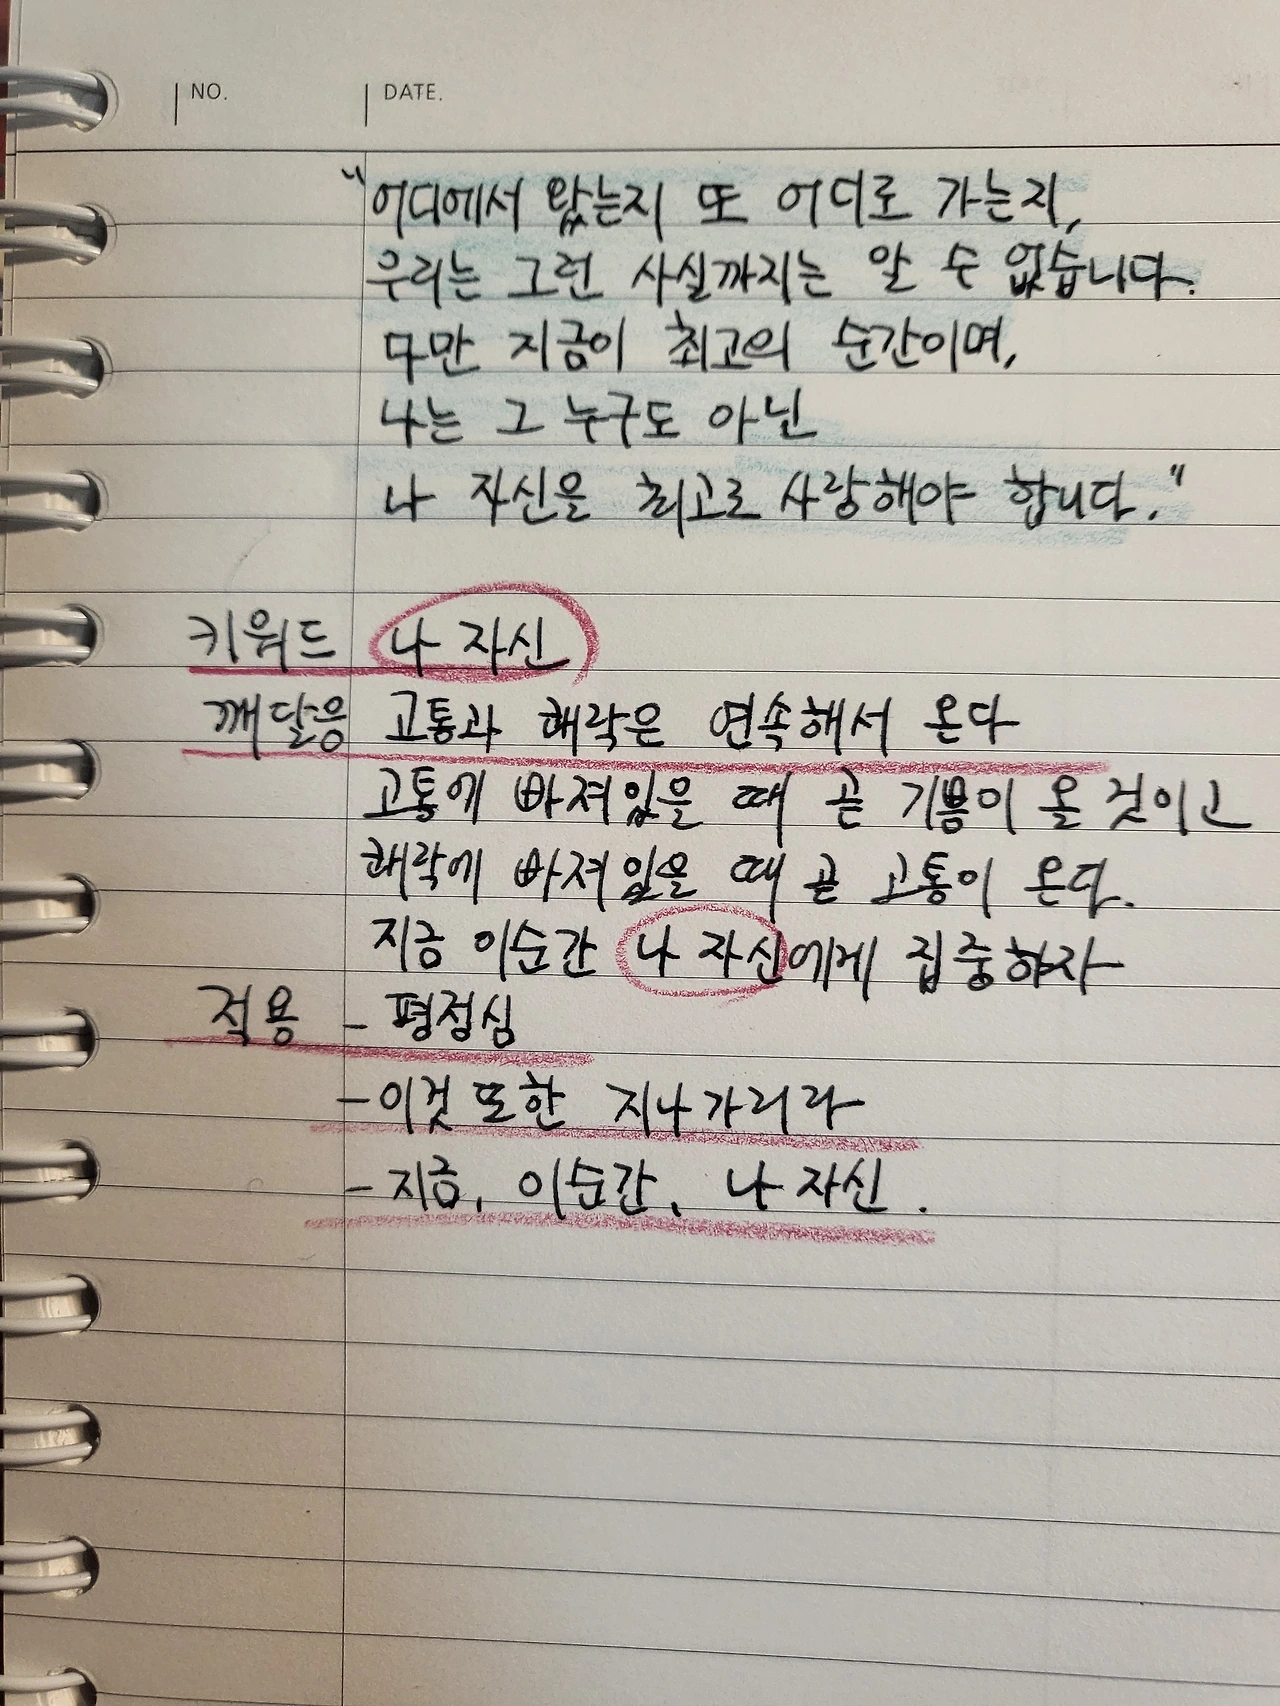 NO. DATE.
"어디에서 왔는지 또 어디로 가는지,
우리는 그런 사실까지는 알 수 없습니다.
다만 지금이 최고의 순간이며,
나는 그 누구도 아닌
나 자신을 최고로 사랑해야 합니다."
키워드 나 자신
깨달음 고통과 쾌락은 연속해서 온다
고통에 빠져있을 때 곧 기쁨이 올 것이고
쾌락에 빠져있을 때 곧 고통이 온다.
지금 이순간 나 자신에게 집중하자
적용 - 평정심
- 이것 또한 지나가리라
- 지금, 이순간, 나 자신.